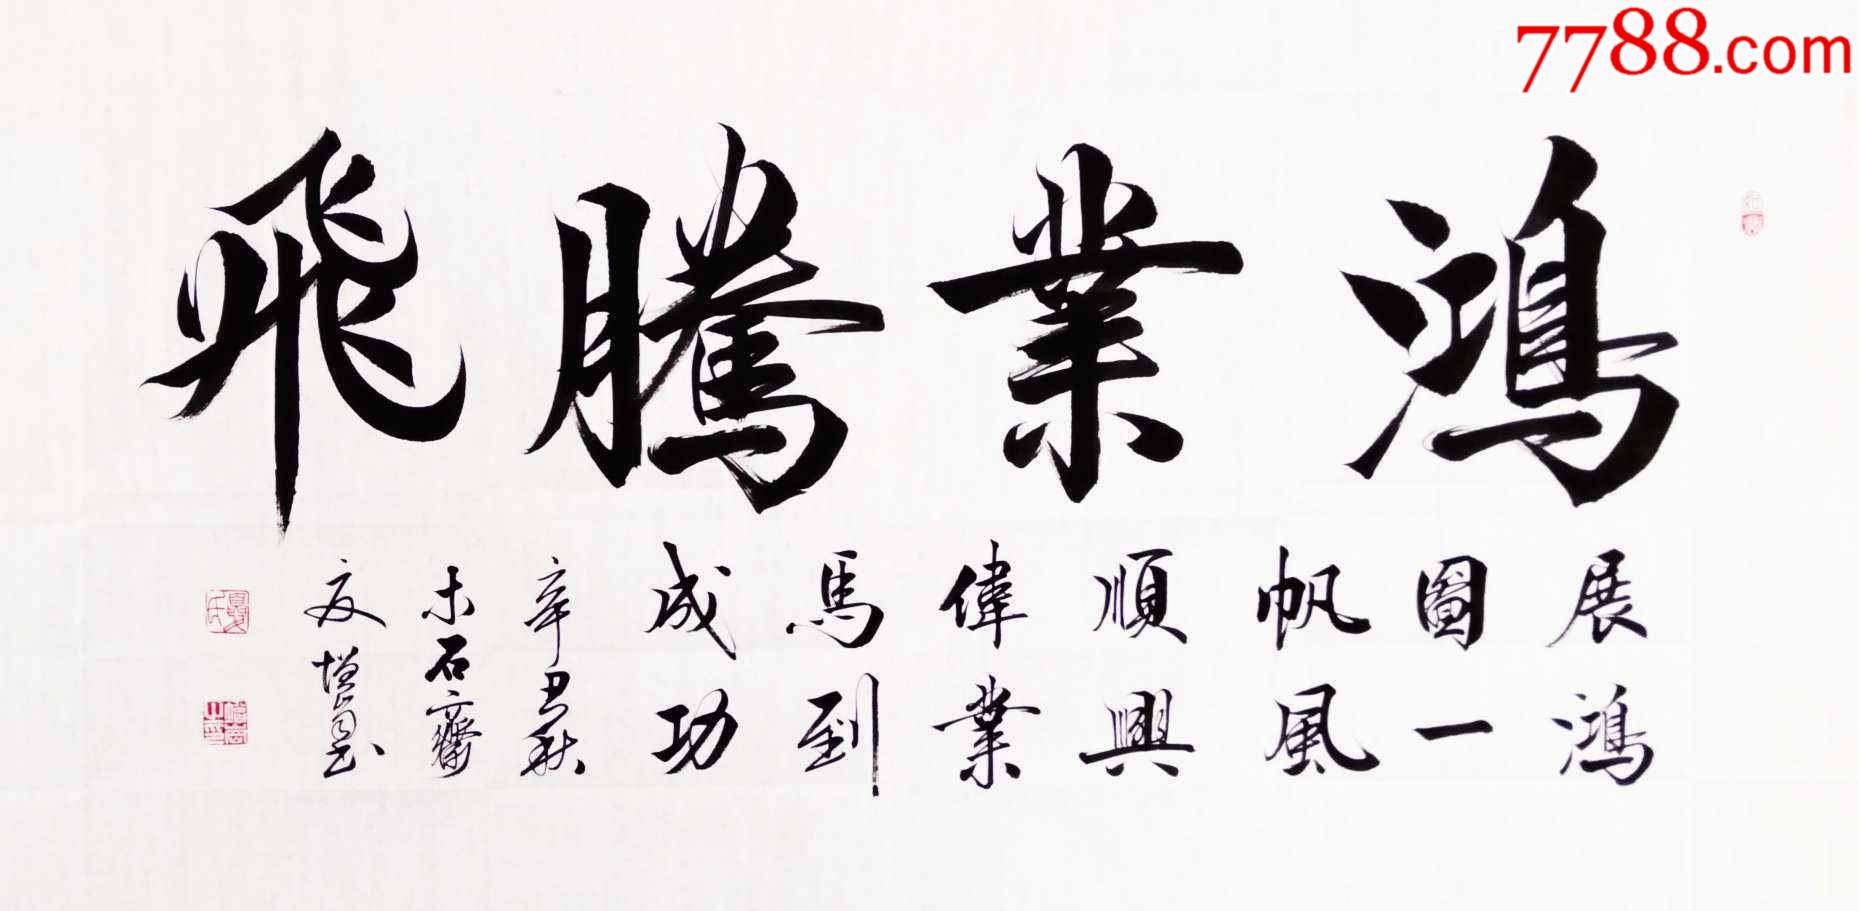 7788.com
鴻業騰飛
展鴻
圖一
帆風
順興
偉業
馬到
成功
辛丑秋
木石齋